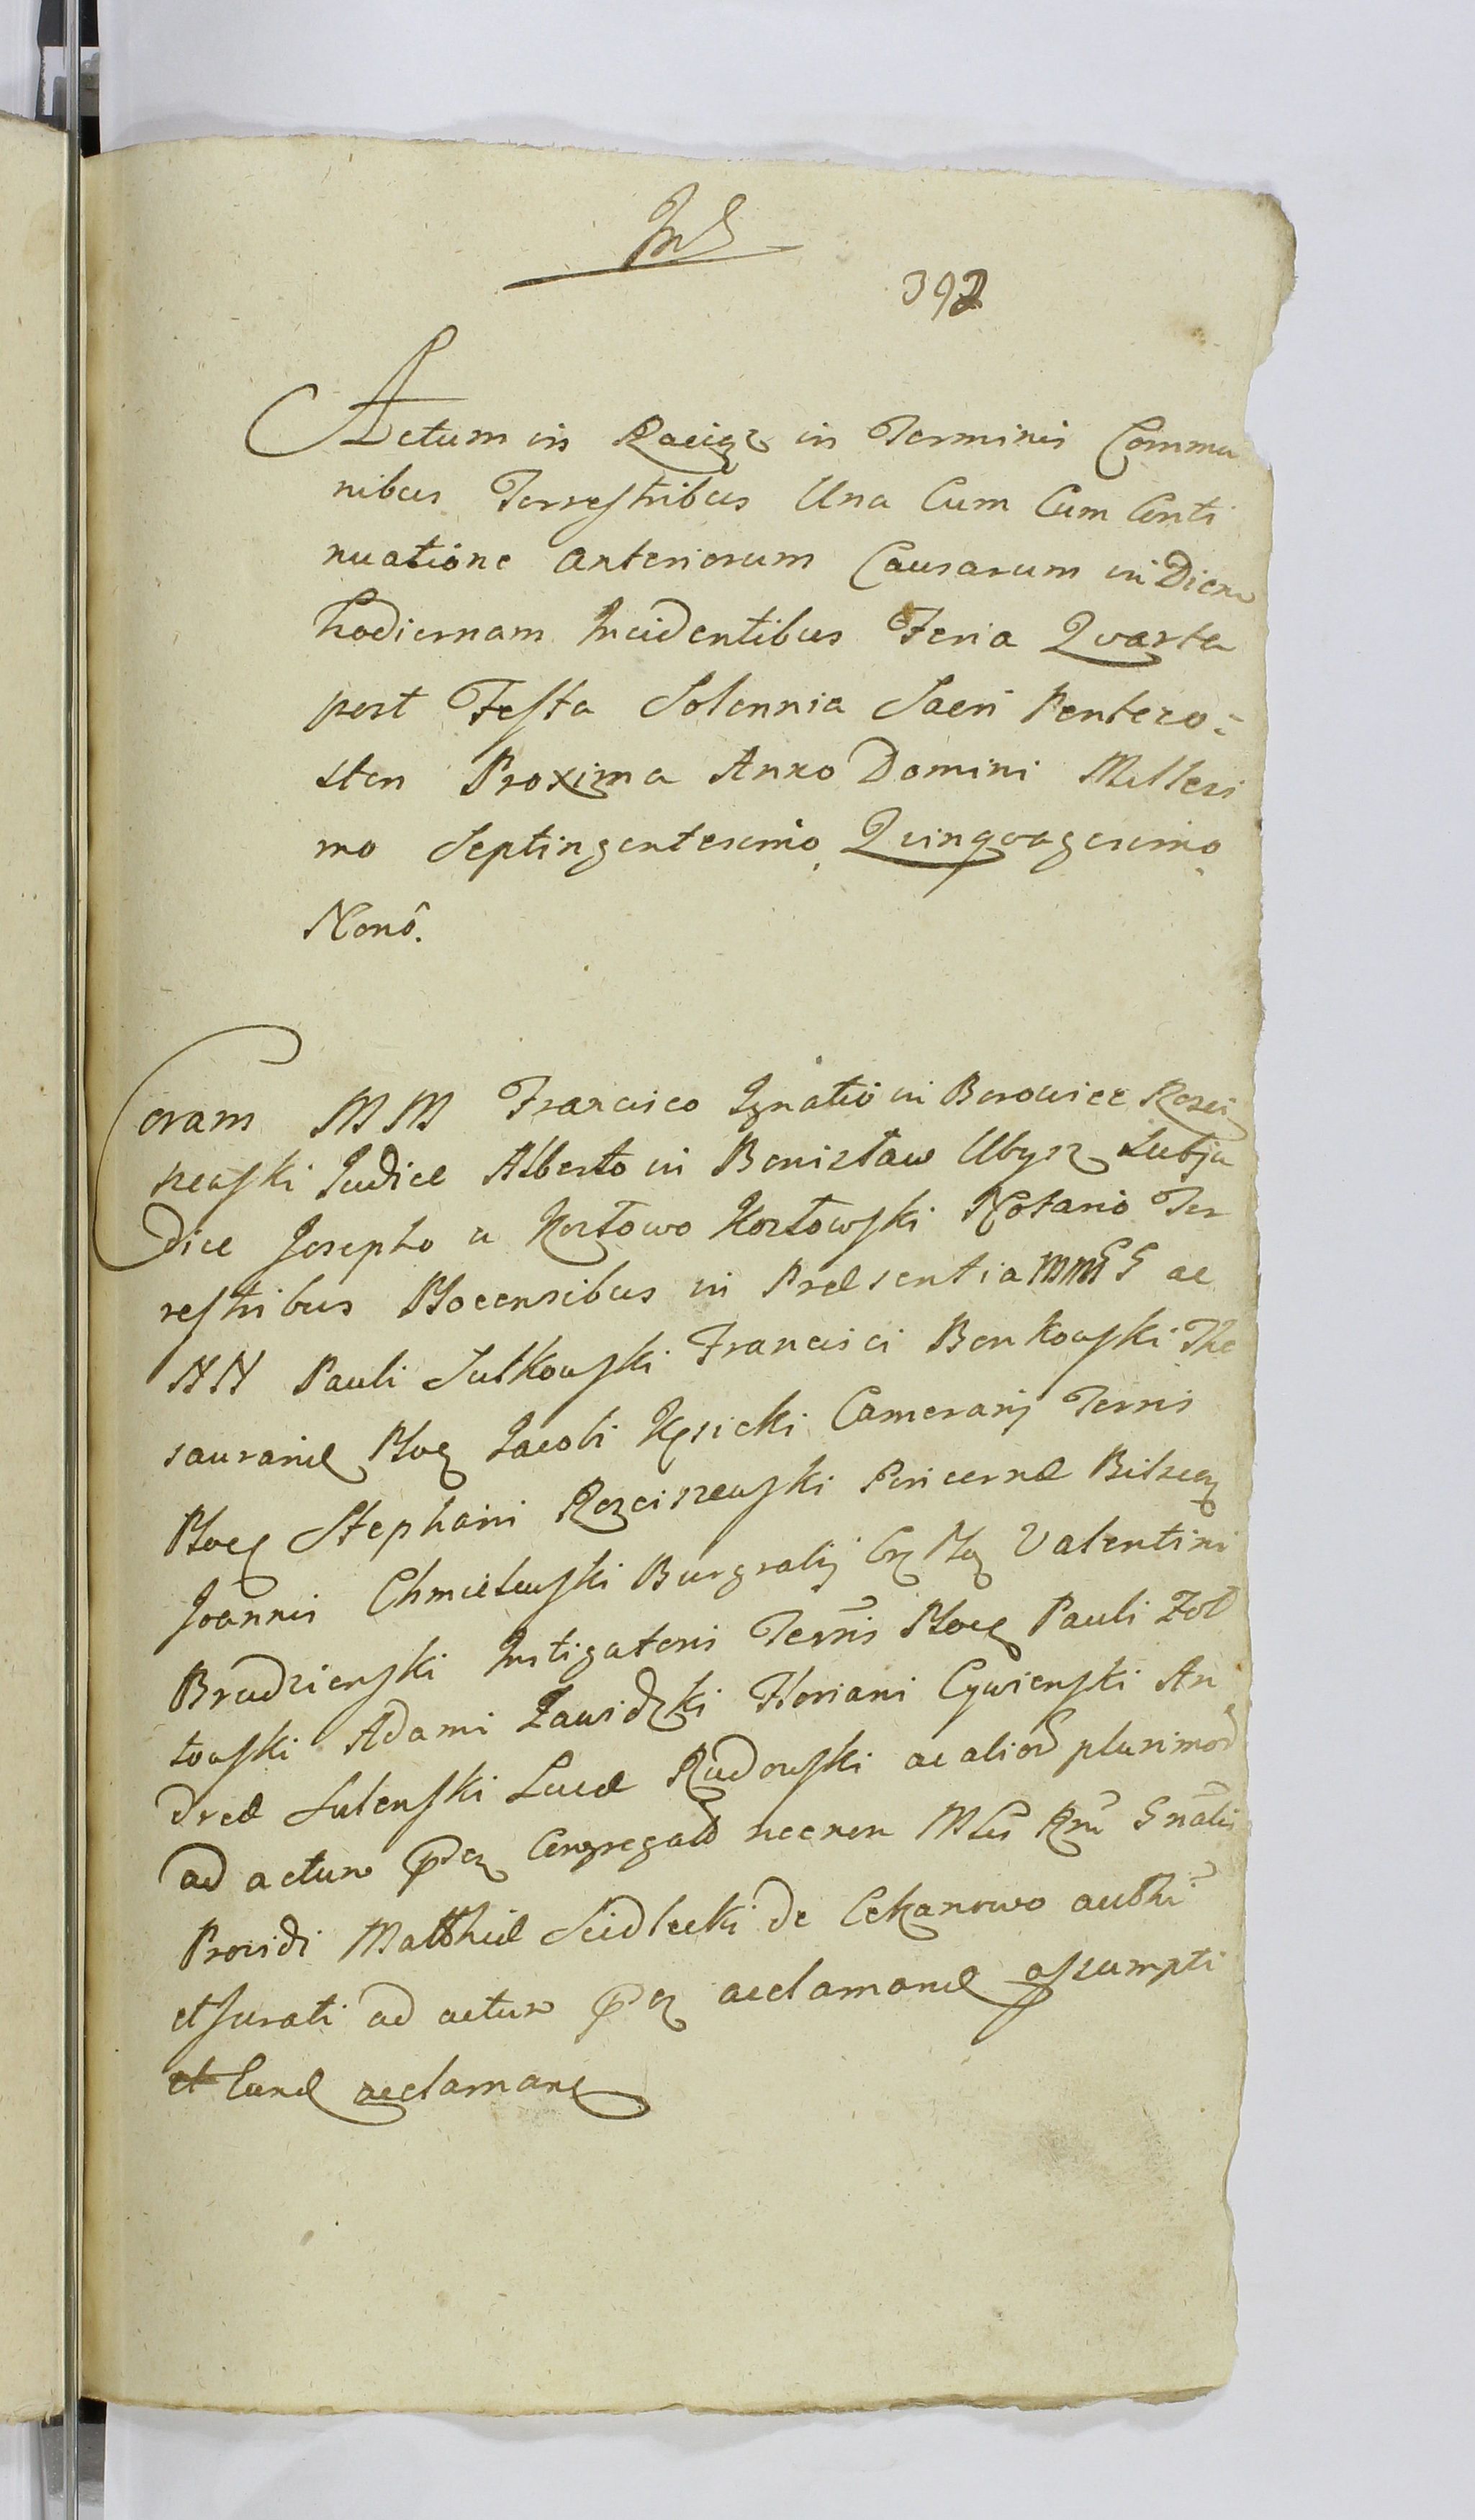 392
Actum in Raciąz in Terminis Commu
nibus Terrestribus Una Cum Cum Conti
nuatione anteriorum Causarum in Diem
hodiernam Incidentibus Feria Qvarta
post Festa Solennia Sacri Penteco=
sten Proxima Anno Domini Millesi
mo Septingentesimo Qvinqvagesimo
Nonô.
Coram MM Francisco Ignatio in Borowice Rosci
szewski Judice Alberto in Bonisław Ubysz Subju
dice Josepho a Kozłowo Kozłowski Notario Ter
restribus Plocensibus in Præsentia MM GG ac
NN Pauli Sulkowski Francisci Bonkowski The
saurariæ Ploc Jacobi Kęsicki Camerarij Terris
Ploc Stephani Rosciszewski Pincernæ Bilscen
Joannis Chmielewski Burgrabij Valentini
Brudzienski Instigatoris Terris Ploc Pauli Zoł
towski Adami Zawidzki Floriani Cywienski An
dreæ Lulenski Lucæ Rudowski ac alior plurimor
ad actum congregator necnon Mtis Rni Gnalis
Providi Matthiæ Siedlecki de Cekanowo authi
et Jurati ad actum acclamand assumpti
et Cund acclamand